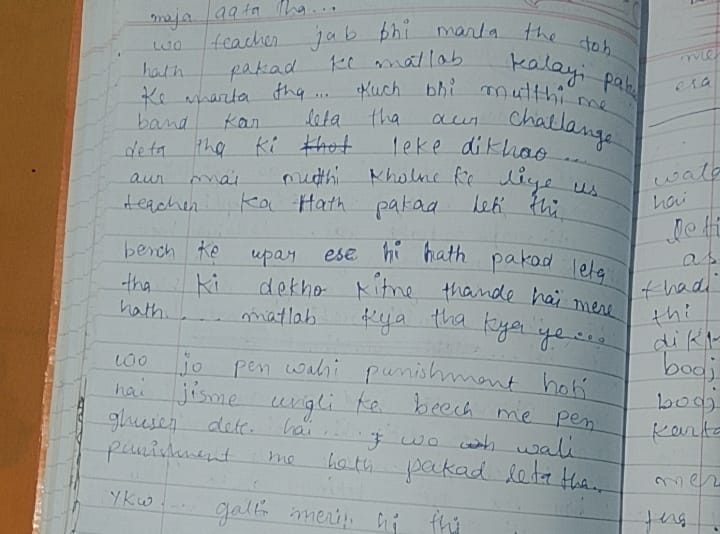 maja aata tha...
wo teacher jab bhi marta the toh
hath pakad ke matlab kalayi
ke marta tha... kuch bhi mutthi me
band kar leta tha aur challange
deta tha ki leke dikhao...
aur mai mutthi kholne ke liye us
teacher ka Hath pakad leti thi
bench ke upar ese hi hath pakad leta
tha ki dekho kitne thande hai mere
hath.... matlab kya tha kya ye....
wo jo pen wali punishment hoti
hai jisme ungli ke beech me pen
dete hai... wo wali
punishment me hath pakad leta tha..
YKW... galti meri hi thi
me
esa
wale
hai
leti
as
khadi
thi
karta
mer